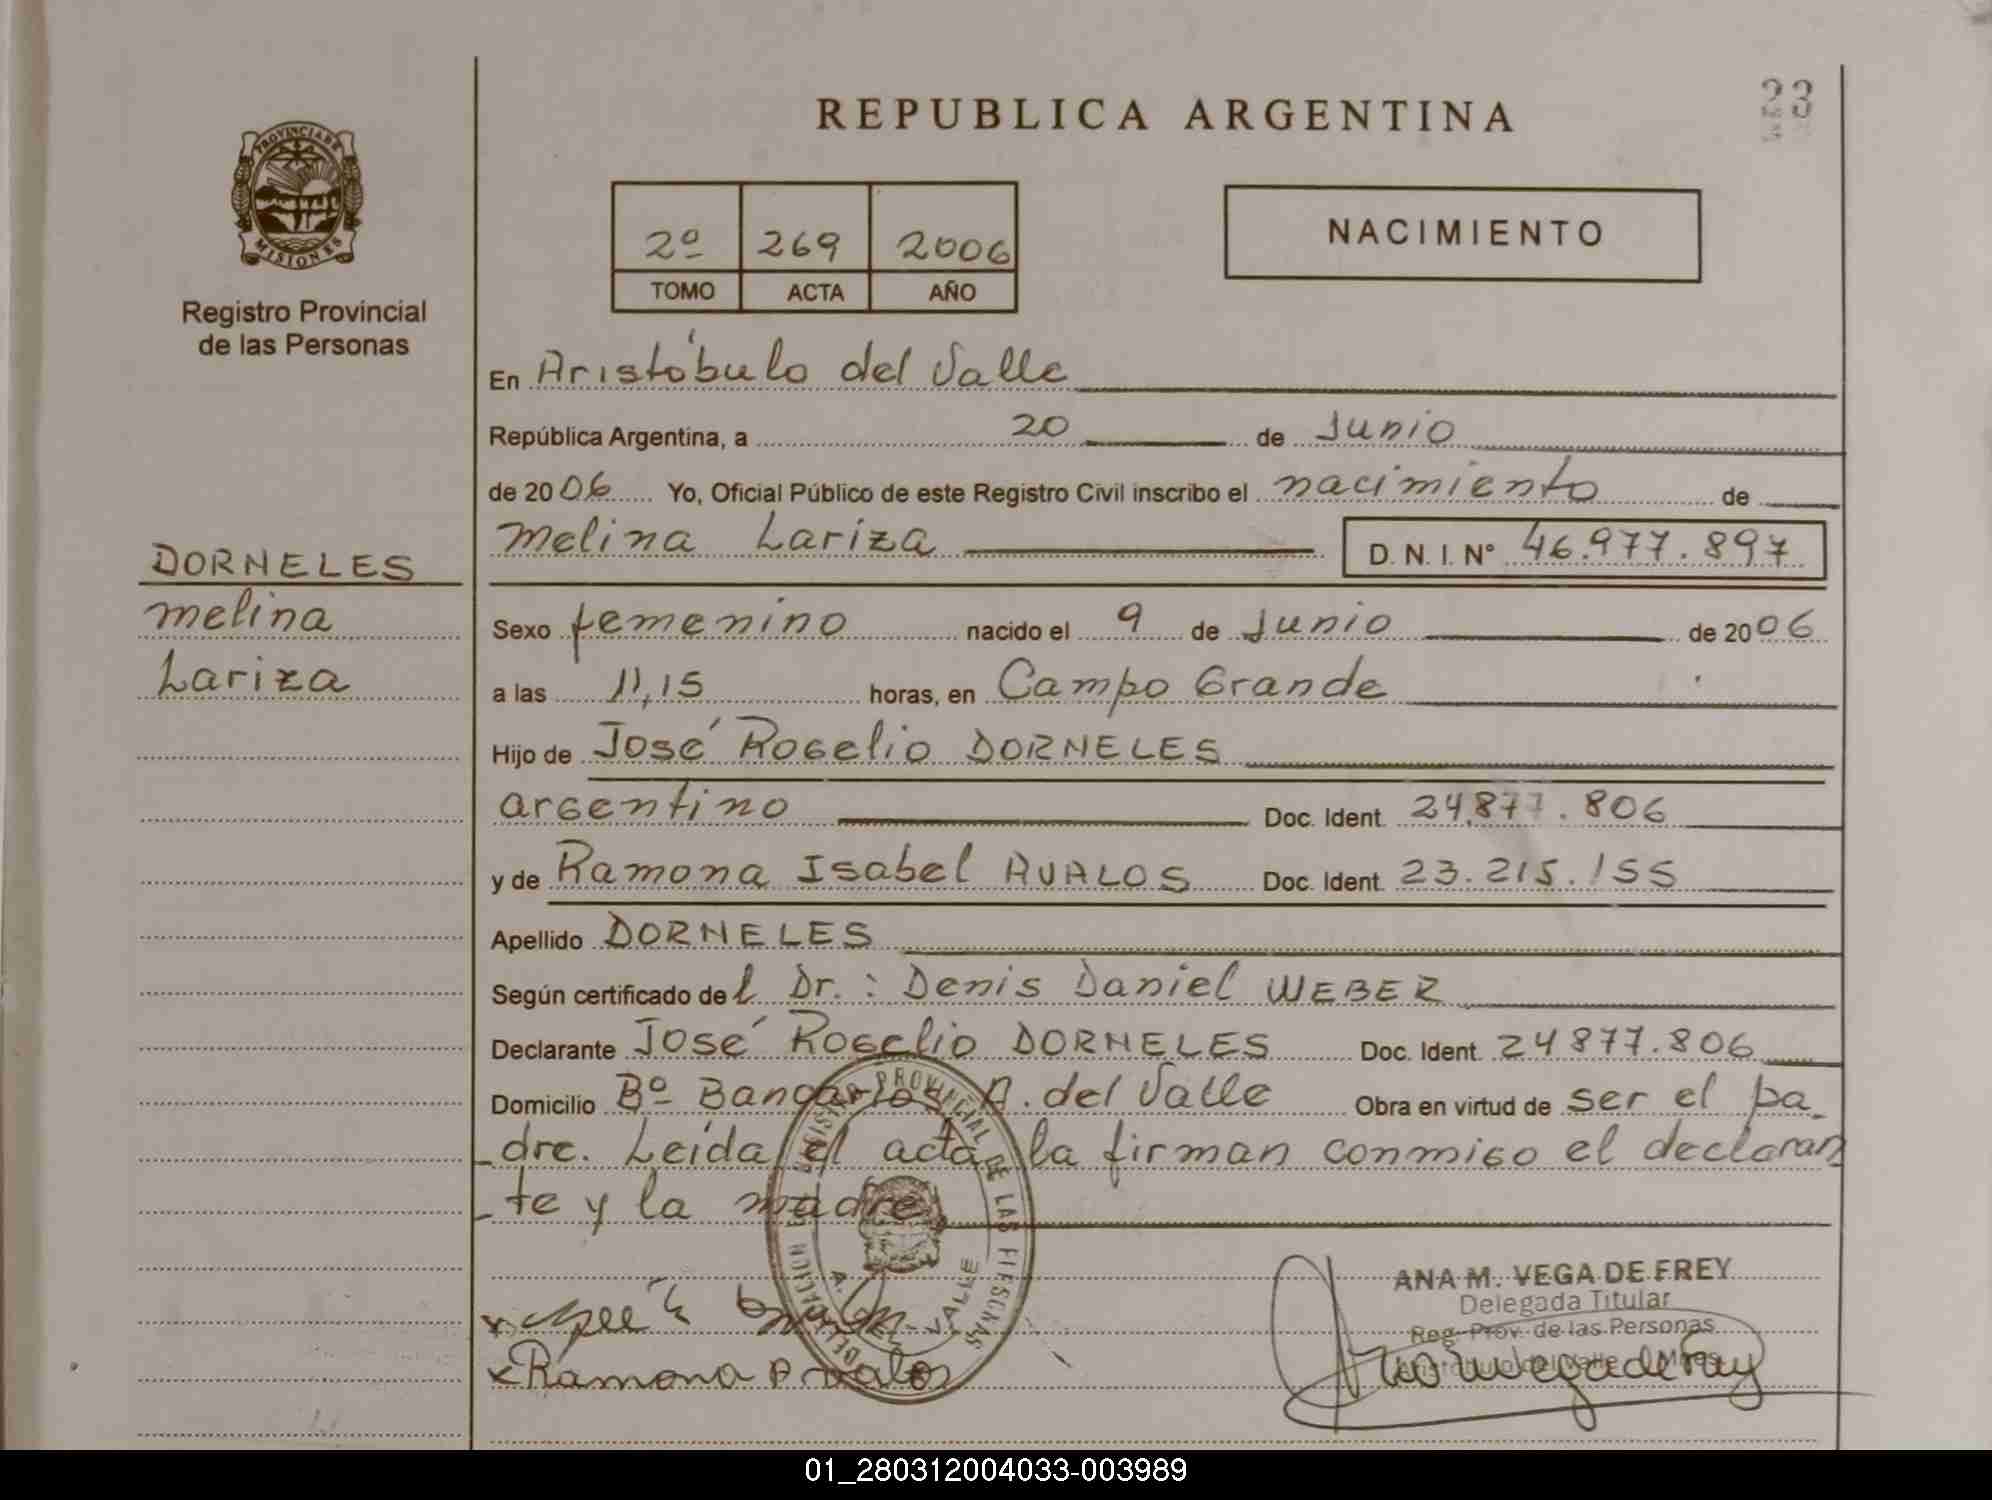 REPUBLICA ARGENTINA
23
PROVINCIA DE
MISIONES
Registro Provincial
de las Personas
2º 269 2006
TOMO ACTA AÑO
NACIMIENTO
En Aristóbulo del Valle
República Argentina, a 20 de Junio
de 2006 Yo, Oficial Público de este Registro Civil inscribo el nacimiento de
Melina Lariza D. N. I. Nº 46.977.897
DORNELES
Melina
Lariza
Sexo femenino nacido el 9 de Junio de 2006
a las 11,15 horas, en Campo Grande
Hijo de José Rogelio DORNELES
argentino Doc. Ident. 24.877.806
y de Ramona Isabel AVALOS Doc. Ident. 23.215.155
Apellido DORNELES
Según certificado del Dr.: Denis Daniel WEBER
Declarante José Rogelio DORNELES Doc. Ident. 24877.806
Domicilio Bº Bancarios A. del Valle Obra en virtud de ser el pa-
-dre. Leída el acta, la firman conmigo el declaran
-te y la madre.
REGISTRO PROVINCIAL DE LAS PERSONAS
DELEGACION
A. DEL VALLE
x Ramona Avalos
ANA M. VEGA DE FREY
Delegada Titular
Reg. Prov. de las Personas
Aristóbulo del Valle
01_280312004033-003989